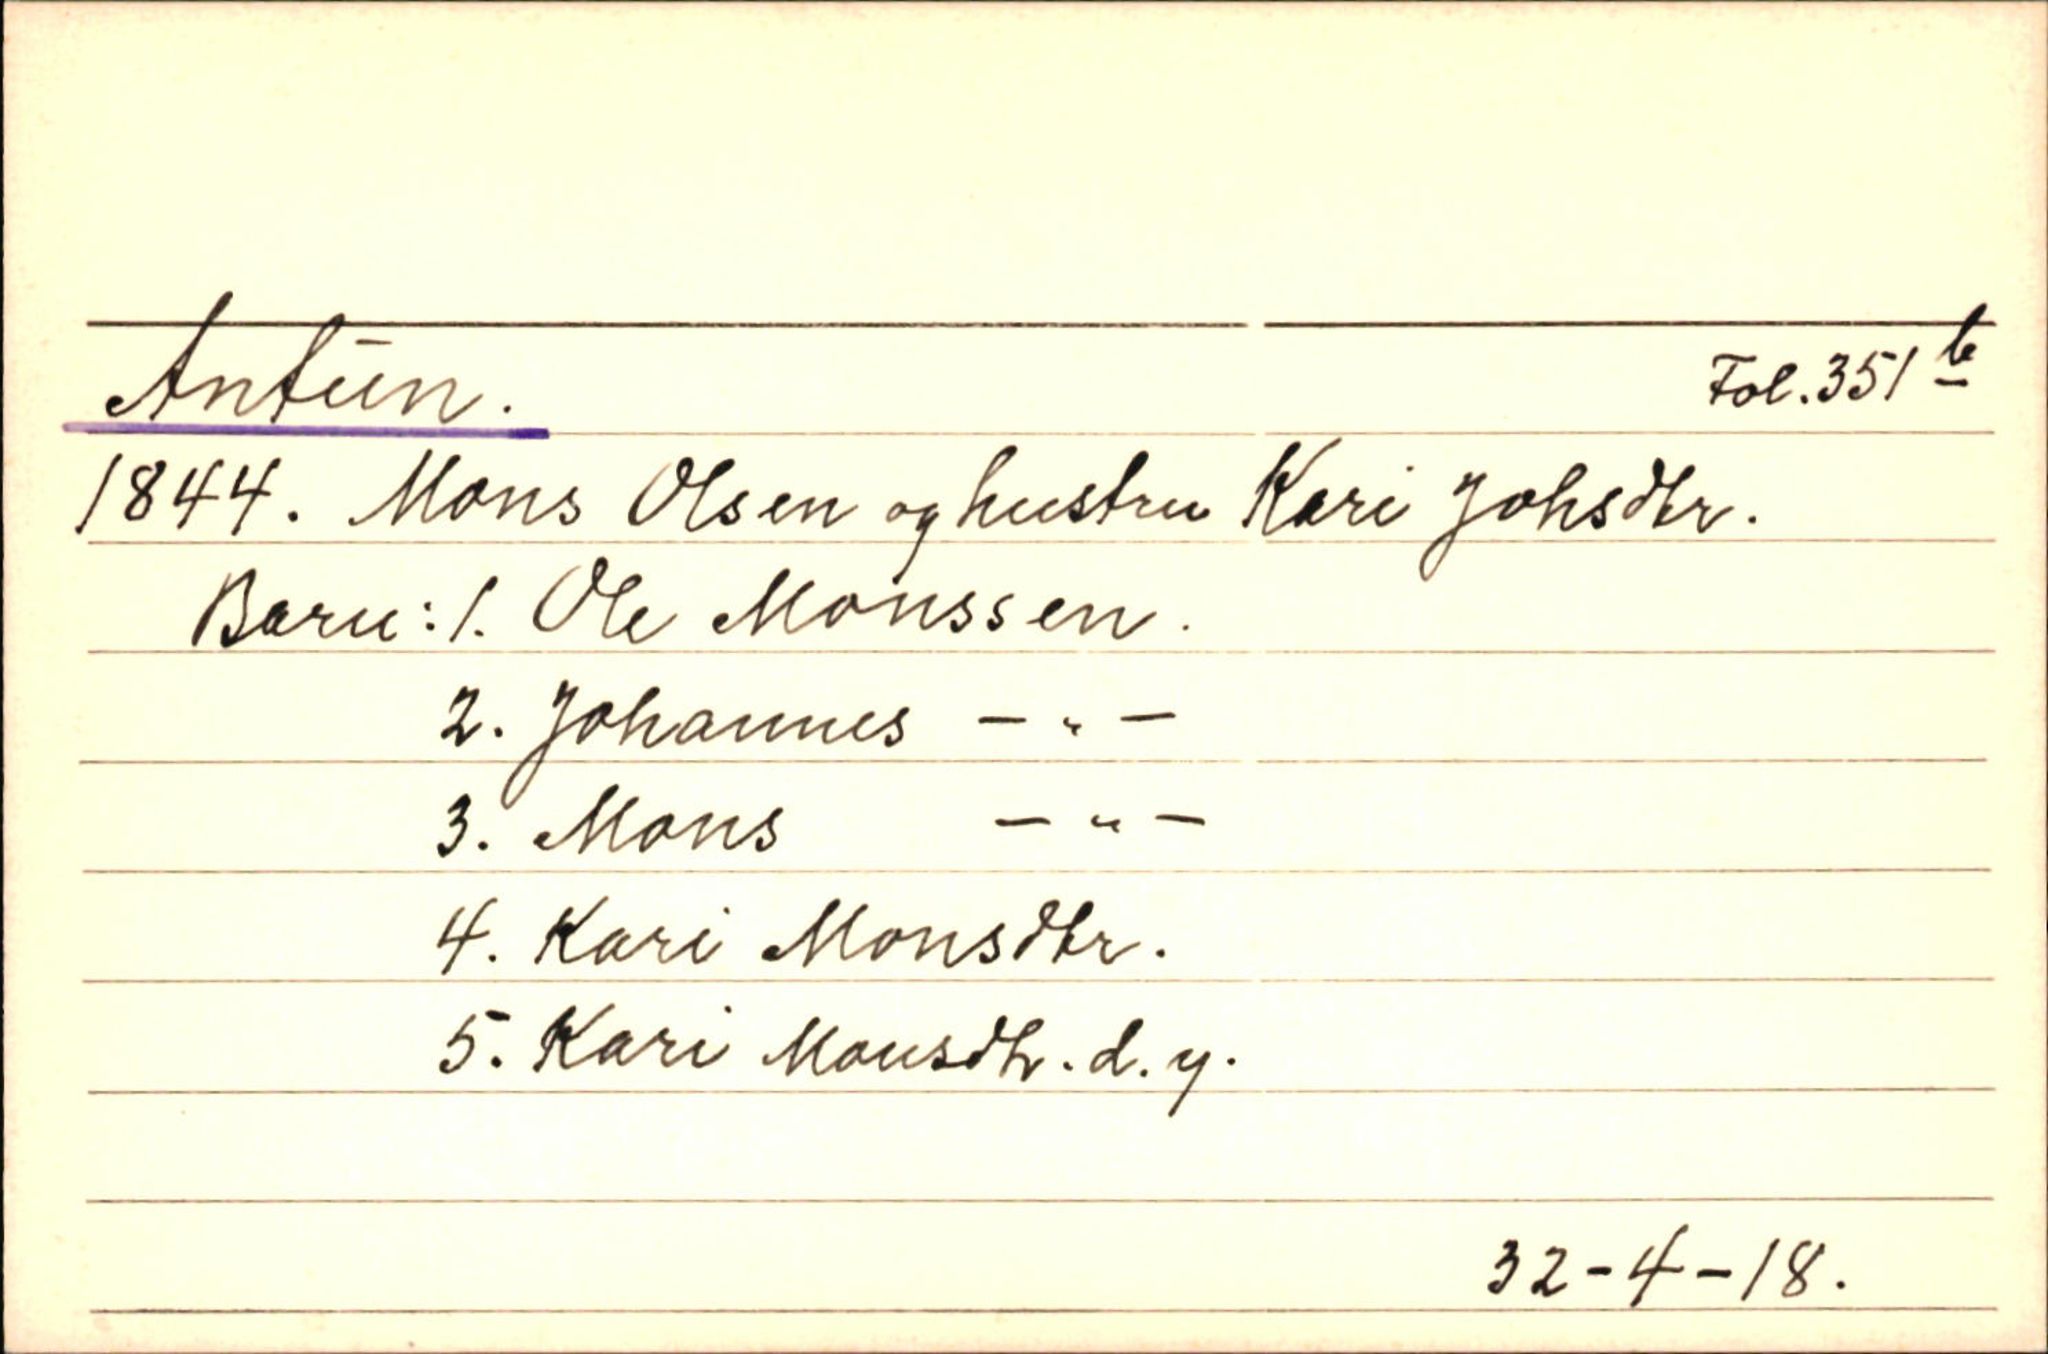 Antun. Fol. 351 b
1844. Mons Olsen og hustru Kari Johsdtr.
Barn: 1. Ole Monssen.
2. Johannes — " —
3. Mons — " —
4. Kari Monsdtr.
5. Kari Monsdtr. d. y.
32-4-18.